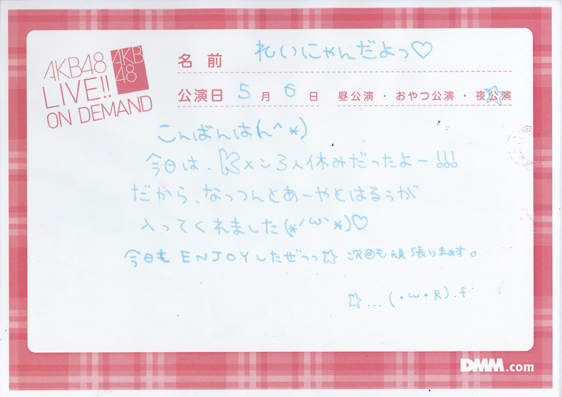 AKB48
LIVE!!
ON DEMAND
AKB
48
名前 れいにゃんだよっ♡
公演日 5月6日 昼公演・おやつ公演・夜公演
こんばんは(^*)
今日は、Kメン3人休みだったよー!!!
だから、なっつんとあーやとはるぅが
入ってくれました(*´ω`*)♡
今日もENJOYしたぜっっ☆ 次回も頑張ります。
☆...(・ω・R).f
DMM.com